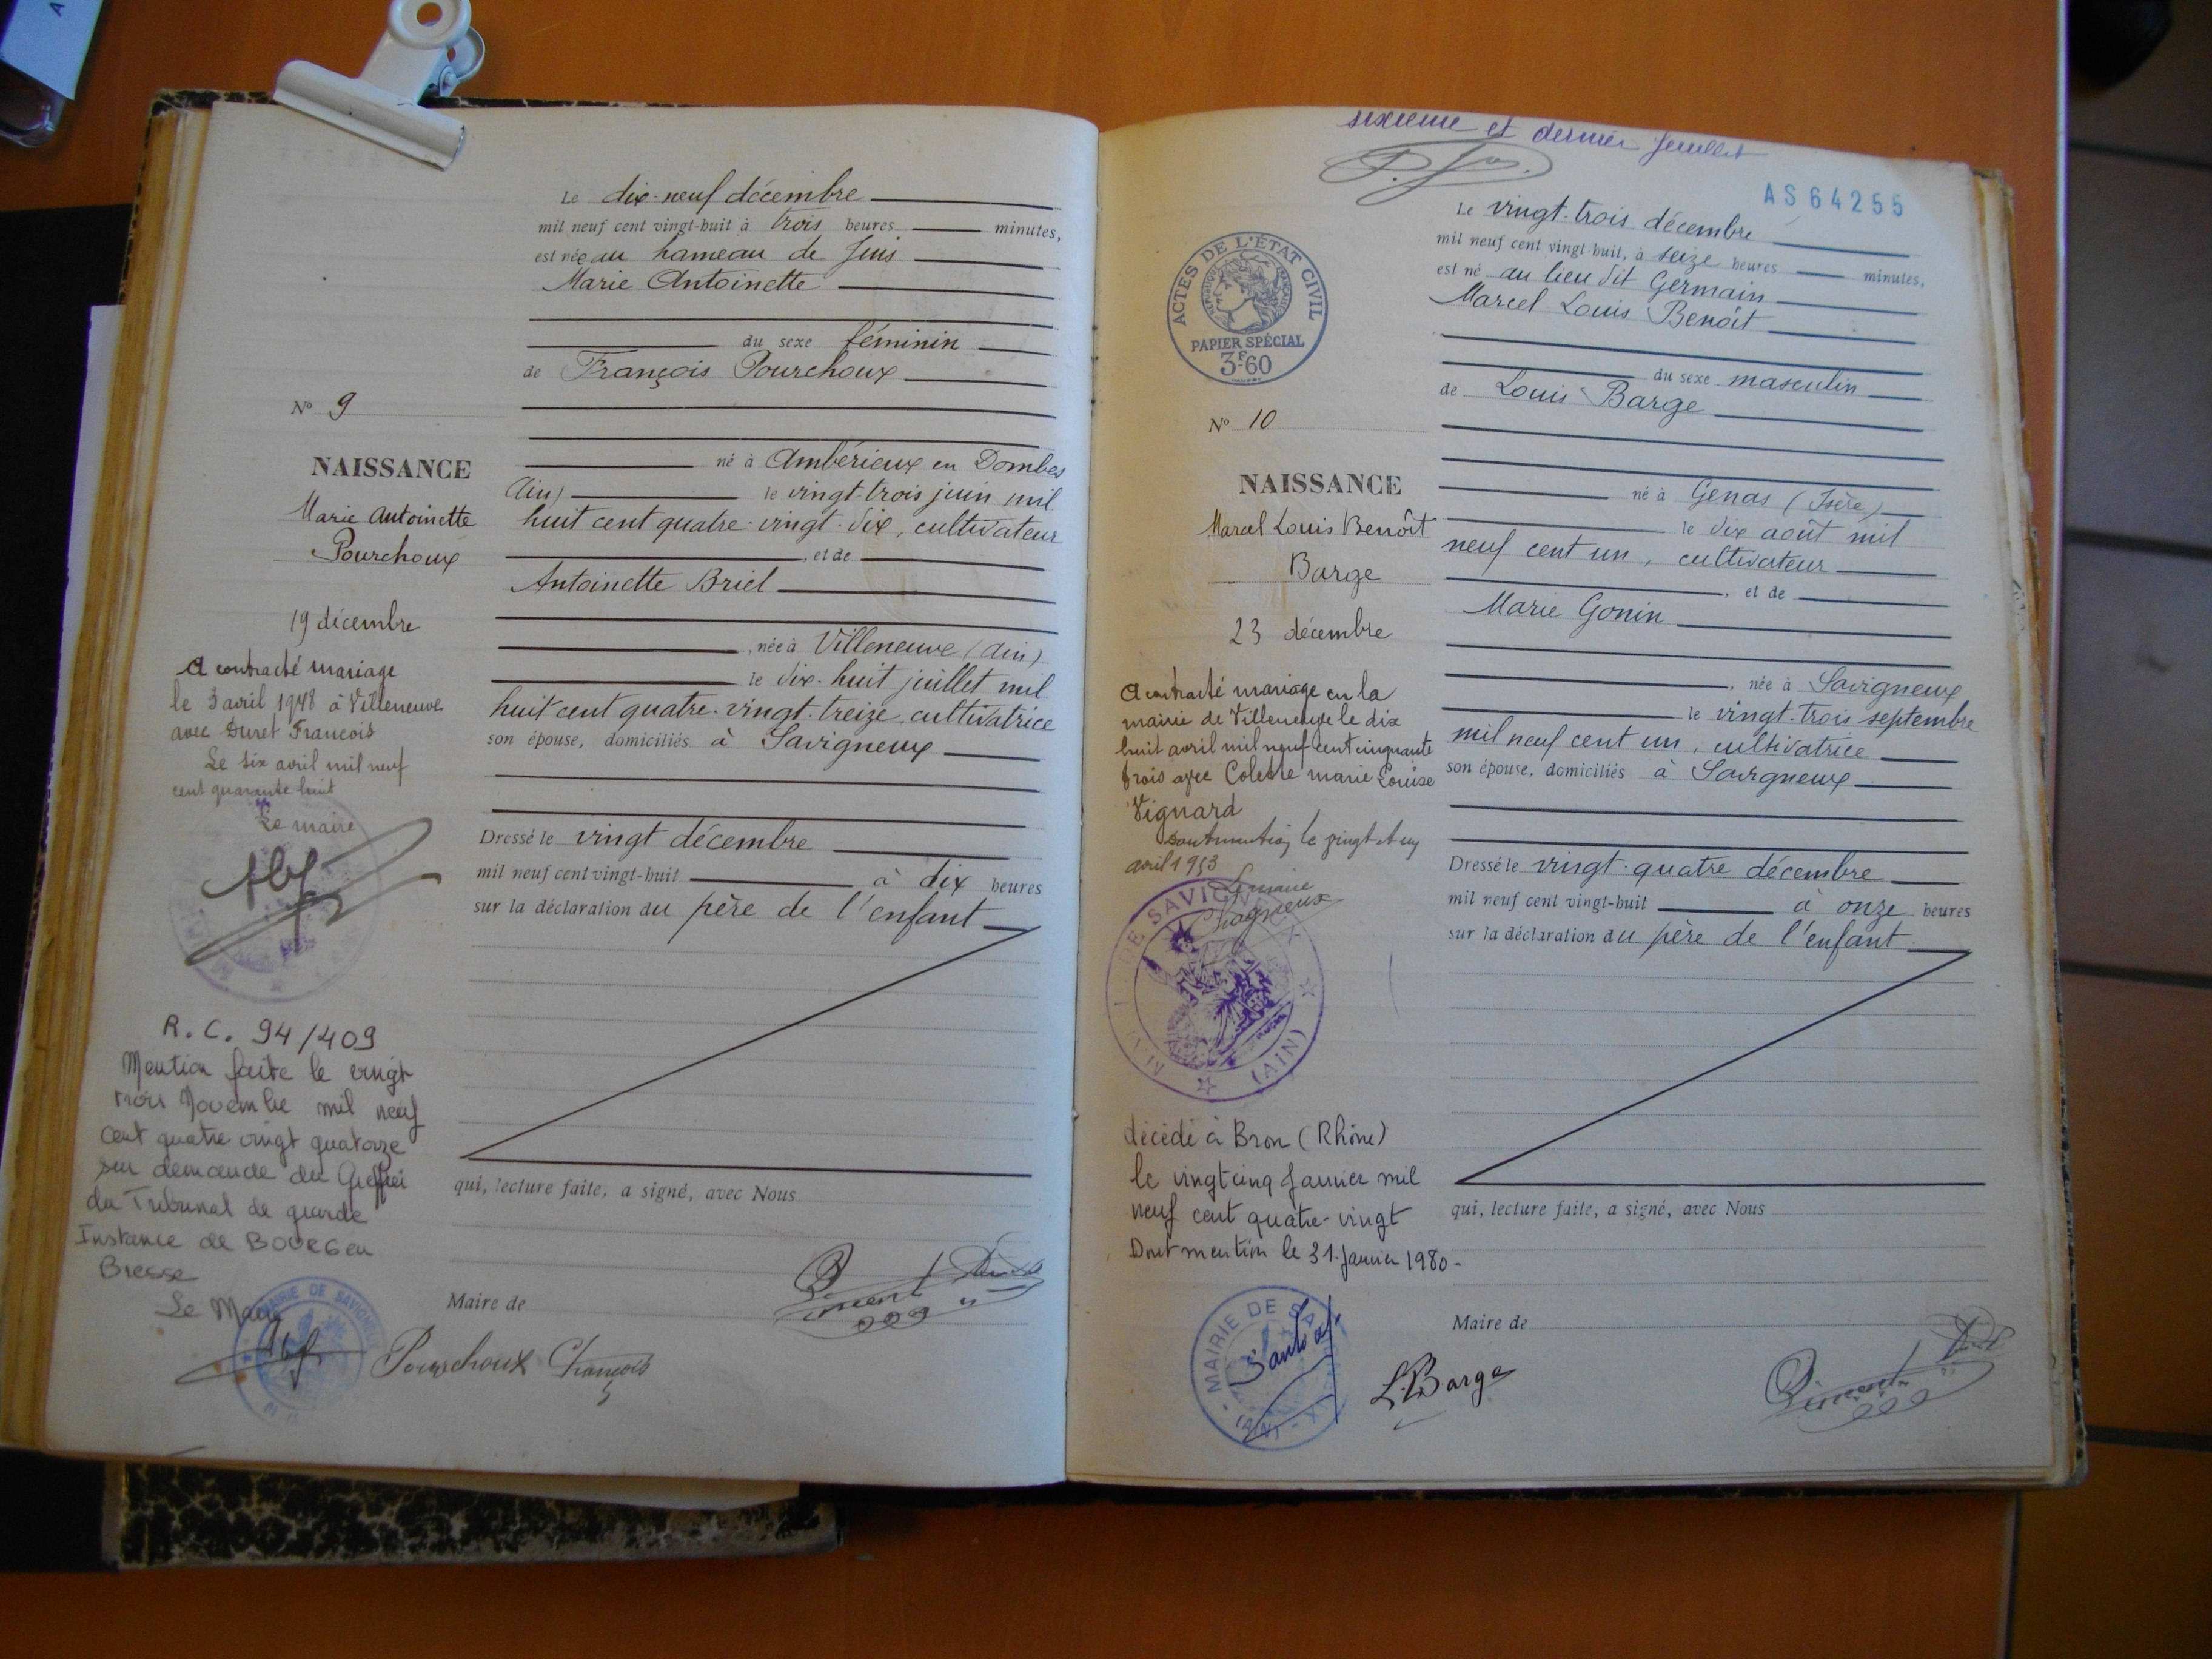 Le dix-neuf décembre
mil neuf cent vingt-huit à trois heures minutes,
est née au hameau de Juis
Marie Antoinette
du sexe féminin
de François Pourchoux
né à Ambérieux en Dombes
(Ain) le vingt-trois juin mil
huit cent quatre-vingt-dix, cultivateur
, et de
Antoinette Briel
, née à Villeneuve (Ain)
le dix-huit juillet mil
huit cent quatre-vingt-treize, cultivatrice
son épouse, domiciliés à Savigneux
Dressé le vingt décembre
mil neuf cent vingt-huit à dix heures
sur la déclaration du père de l'enfant
qui, lecture faite, a signé, avec Nous
Maire de
Pourchoux François
No 9
NAISSANCE
Marie Antoinette
Pourchoux
19 décembre
A contracté mariage
le 3 avril 1948 à Villeneuve
avec Duret François
Le six avril mil neuf
cent quarante huit
Le maire
R.C. 94/409
Mention faite le vingt
trois Novembre mil neuf
cent quatre vingt quatorze
sur demande du Greffier
du Tribunal de grande
Instance de BOURG en
Bresse
Le Maire
MAIRIE DE SAVIGNEUX
sixième et dernier feuillet
AS64255
ACTES DE L'ÉTAT CIVIL
PAPIER SPÉCIAL
3F60
Le vingt-trois décembre
mil neuf cent vingt-huit, à seize heures minutes,
est né au lieu dit Germain
Marcel Louis Benoît
du sexe masculin
de Louis Barge
né à Genas (Isère)
le dix août mil
neuf cent un, cultivateur
, et de
Marie Gonin
, née à Savigneux
le vingt-trois septembre
mil neuf cent un, cultivatrice
son épouse, domiciliés à Savigneux
Dressé le vingt-quatre décembre
mil neuf cent vingt-huit à onze heures
sur la déclaration du père de l'enfant
qui, lecture faite, a signé, avec Nous
Maire de
L. Barge
No 10
NAISSANCE
Marcel Louis Benoît
Barge
23 décembre
A contracté mariage en la
mairie de Villeneuve le dix
huit avril mil neuf cent cinquante
trois avec Colette marie Louise
Vignard
Dont mention le vingt et un
avril 1953
Le maire
MAIRIE DE SAVIGNEUX
(AIN)
décédé à Bron (Rhône)
le vingt cinq Janvier mil
neuf cent quatre-vingt
Dont mention le 31 Janvier 1980-
MAIRIE DE SA
(AIN)